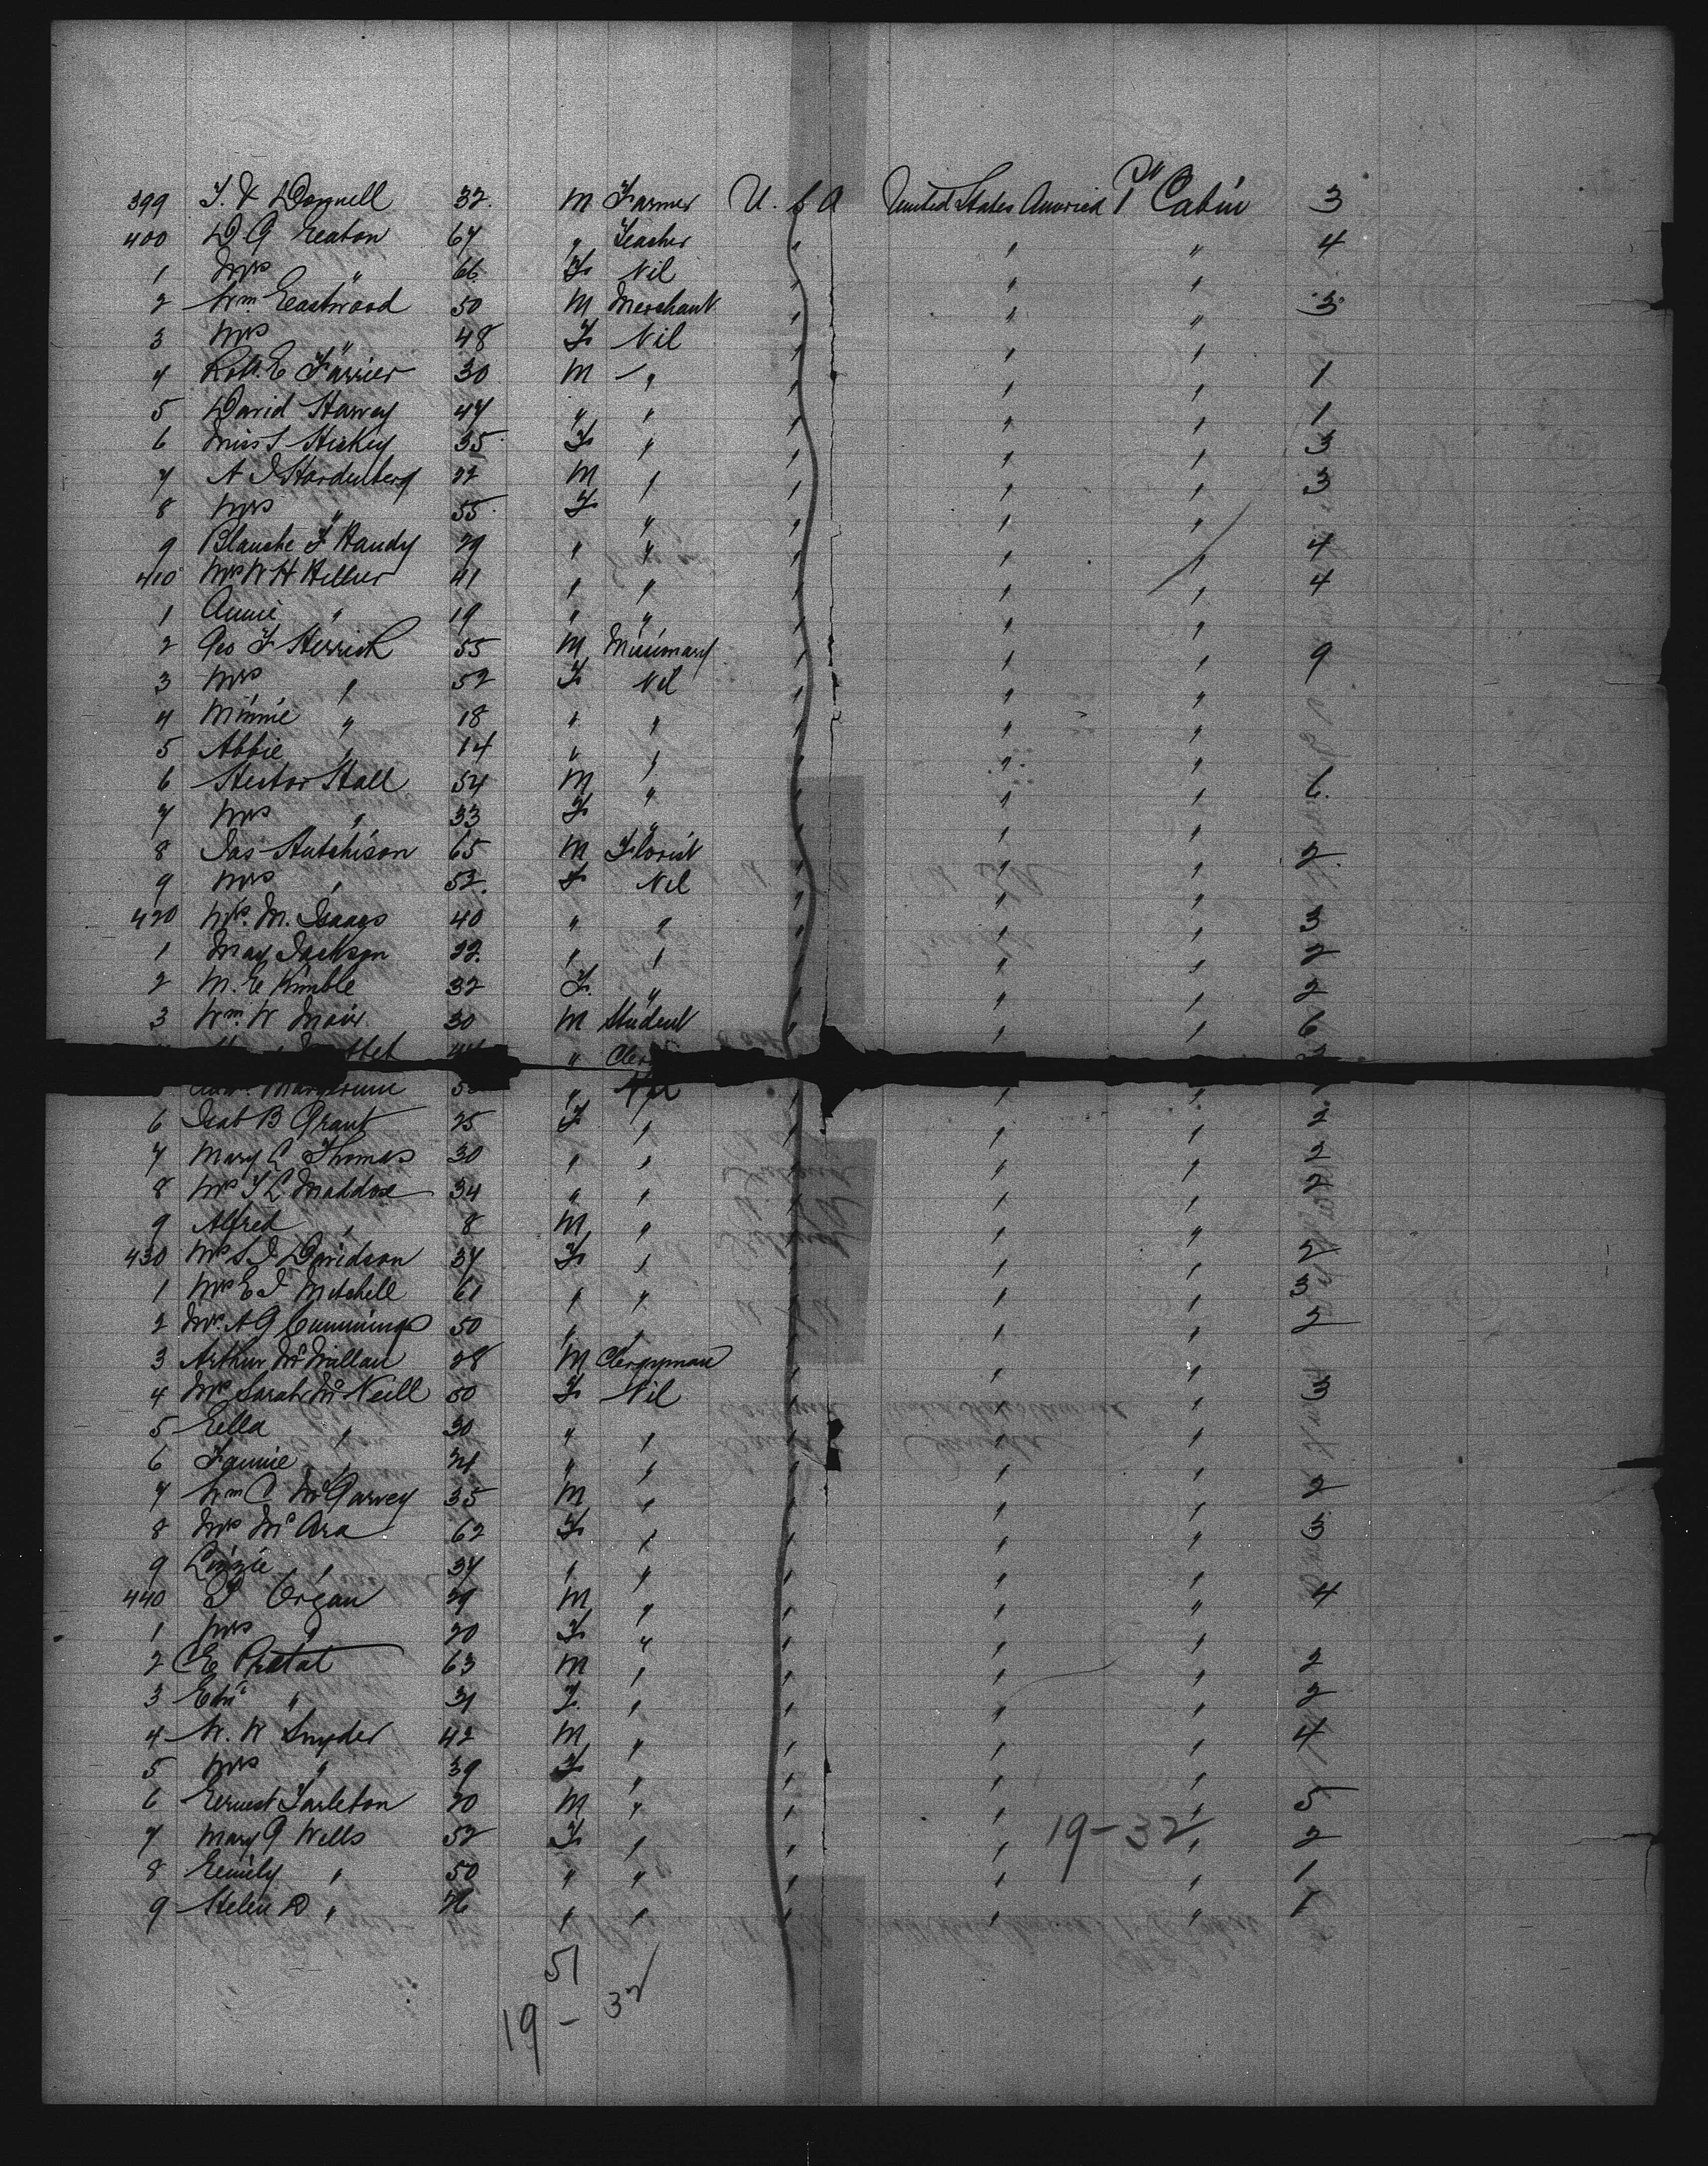 399 T. V. Donnell 32. M Farmer U. S. A United States America 1st Cabin 3
400 D G Eaton 67 " Teacher " " " 4
1 Mrs " 66 F Nil " " "
2 Wm Eastwood 50 M Merchant " " " 3
3 Mrs " 48 F Nil " " "
4 Robt. E Farrier 30 M " " " " 1
5 David Harvey 47 " " " " " 1
6 Miss S Hickey 35 F " " " " 3
7 A J Hardenberg 22 M " " " " 3
8 Mrs " 55 F " " " "
9 Blanche F Handy 29 " " " " " 4
410 Mrs W H Hellier 41 " " " " " 4
1 Annie " 19 " " " " "
2 Geo F Herrick 55 M Missionary " " " 9
3 Mrs " 52 F Nil " " "
4 Minnie " 18 " " " " "
5 Abbie " 14 " " " " "
6 Hector Hall 54 M " " " " 6.
7 Mrs " 33 F " " " "
8 Jas Hutchison 65 M Florist " " " 2.
9 Mrs " 52. F Nil " " "
420 Mrs. M. Isaacs 40 " " " " " 3
1 May Jackson 22. " " " " " 2
2 M. E Kimble 32 F. " " " " 2
3 Wm. W Mair 30 M Student " " " 6
" " "
" Nil " " "
6 Isab B Grant 25 F " " " " 2
7 Mary C Thomas 30 " " " " " 2
8 Mrs T L Maddox 34 " " " " " 2
9 Alfred " 8 M " " " "
430 Mrs S J Davidson 37 F " " " " 2
1 Mrs E J Mitchell 61 " " " " " 3
2 Mrs. A G Cummings 50 " " " " " 2
3 Arthur McMillan 28 M Clergyman " " "
4 Mrs Sarah McNeill 50 F Nil " " " 3
5 Eella " 30 " " " " "
6 Fannie " 21 " " " " "
7 Wm C McGarvey 35 M " " " " 2
8 Mrs McAra 62 F " " " " 3
9 Lizzie " 34 " " " " "
440 Organ 29 M " " " " 4
1 Mrs " 20 F " " " "
2 C E Pratat 63 M " " " " 2
3 " 31 F. " " " " 2
4 W. W Snyder 42 M " " " " 4
5 Mrs " 39 F " " " "
6 Eernest Tarleton 20 M " " " " 5
7 Mary G Wells 52 F " " " " 2
19-32
8 Eemily " 50 " " " " " 1
9 Helen D " 26 " " " " " 1
51
19 - 32